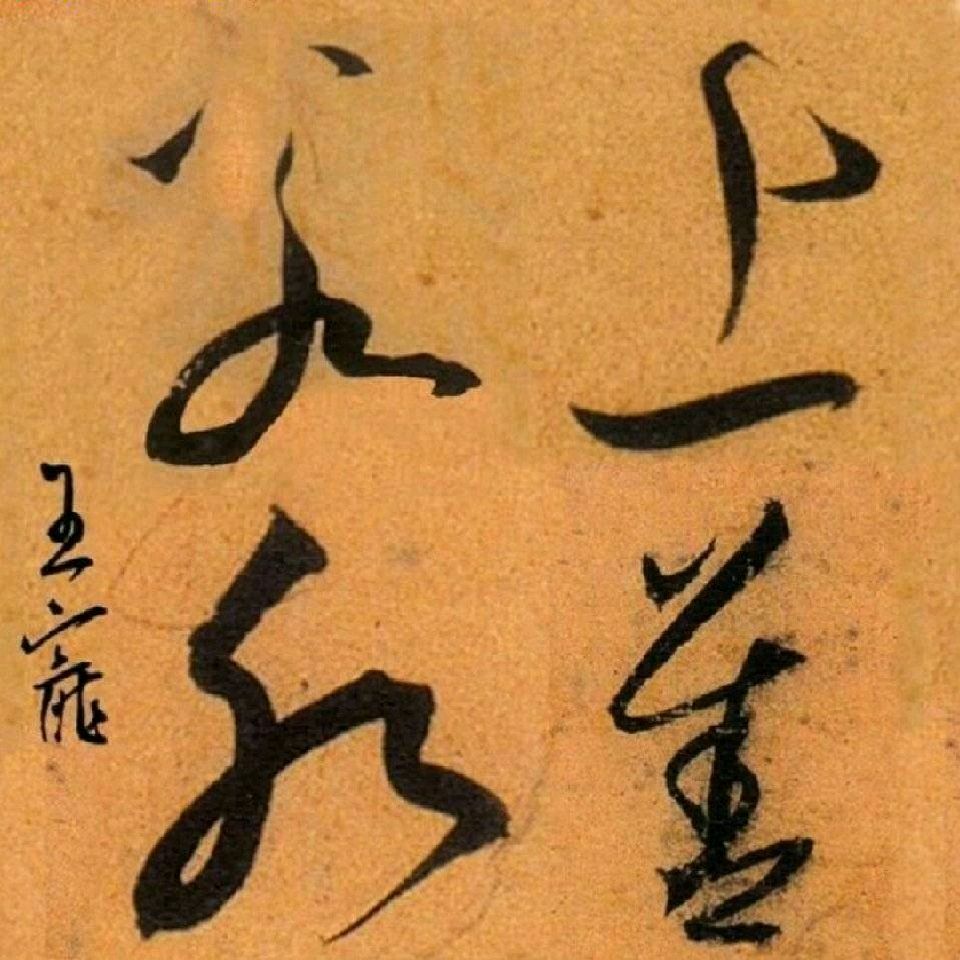 上善
若水
王寵